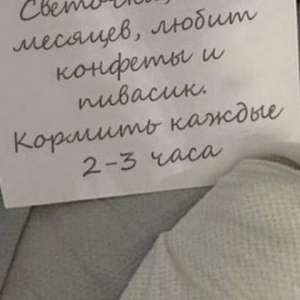 Светочка,
месяцев, любит
конфеты и
пивасик.
Кормить каждые
2-3 часа